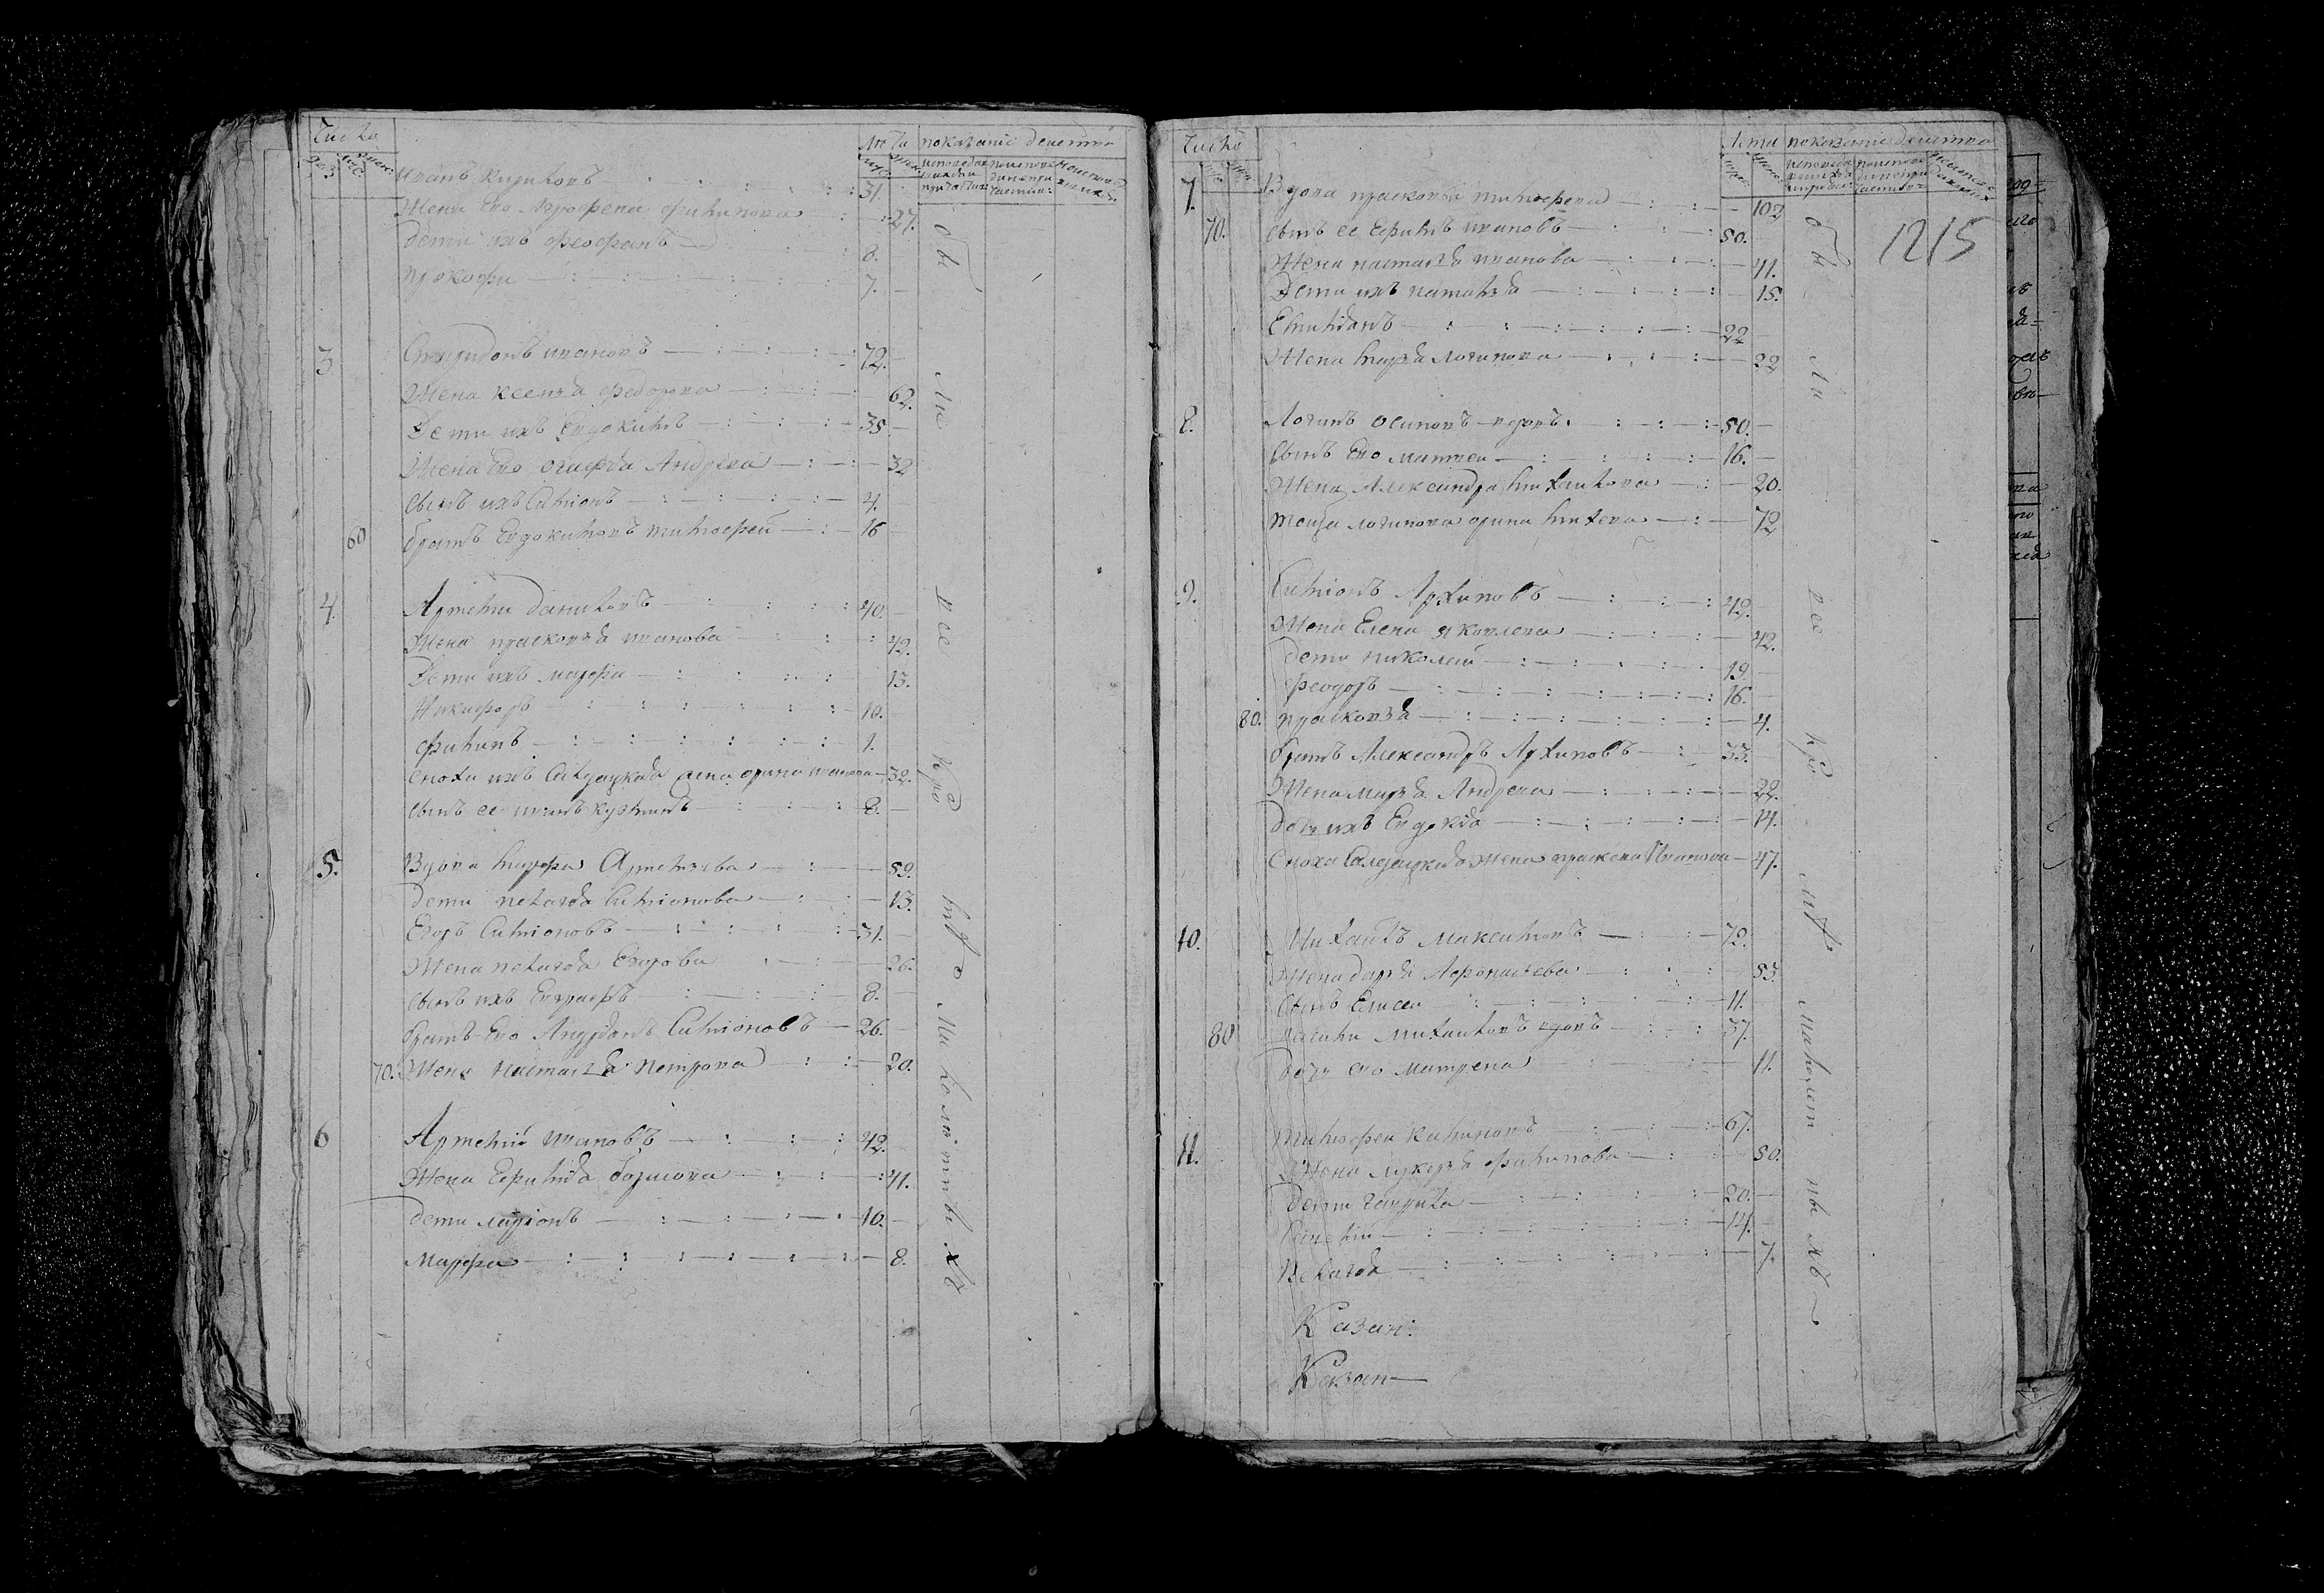 Число
Лета
показание действа
Иванъ Кириловъ 31.
Жена Ево Агрофена филипова 27.
Дети ихъ феофанъ 8.
прокофи 7.
3 Спиридонъ ивановъ 72.
Жена ксенья федорова 62.
Дети ихъ Евдокимъ 35
Жена Ево Агафья Андреева 32
сынъ ихъ Симионъ 4.
60 братъ Евдокимовъ тимофей 16
4. Артеми даниловъ 40.
Жена прасковья иванова 42.
Дети ихъ марфа 13.
Никифоръ 10.
филипъ 1.
сноха ихъ Салдацкая жена орина иванова 32.
сынъ ее иванъ кузминъ 8.
5. Вдова марфа Артемьева 59.
Дети пелагея Симионова 13.
Егоръ Симионовъ 31.
Жена пелагея Егорова 26.
сынъ ихъ Евграфъ 8.
братъ Ево Андреянъ Симионовъ 26.
70. Жена настасья петрова 20.
6 Артемий ивановъ 42.
Жена Ефимья борисова 41.
Дети ларионъ 10.
Марфа 8.
бы ли все
Число
Лета
показание действа
1215
7. Вдова прасковья тимофеева 102
70. сынъ ее Ефимъ ивановъ 50.
Жена настасья иванова 41.
Дети ихъ наталья 15.
Емильянъ 22
Жена марья логинова 22
8. Логинъ осиповъ вдовъ 50.
сынъ Ево матвеи 16.
Жена Александра михаилова 20.
теща логинова орина михеева 72
9. Симионъ Архиповъ 42.
Жена Елена яковлева 42.
Дети николаи 19.
феодоръ 16.
80. прасковья 4.
братъ Александръ Архиповъ 33.
Жена марья Андреева 22.
дочь ихъ Евдокия 14.
Сноха Салдацкая жена Иванова 47.
10. Михаилъ максимовъ 72.
Жена дарья Афонасьева 53.
сынъ Елисеи 11.
80 михаиловъ вдовъ 37.
дочь ево матрена 11.
11. тимофеи 67.
Жена лукерья филипова 50.
Дети гаврила 20.
14.
Пелагея 7.
Казан:
Казан
бы ли все кро мѣ малолет ны хъ